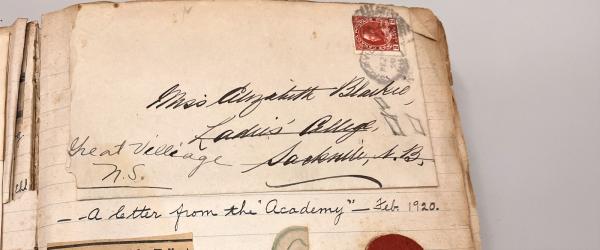 Miss Elizabeth Blackie,
Ladies' College,
Great Village
Sackville, N.B.
N.S.
-- A letter from the "Academy" - Feb 1920.